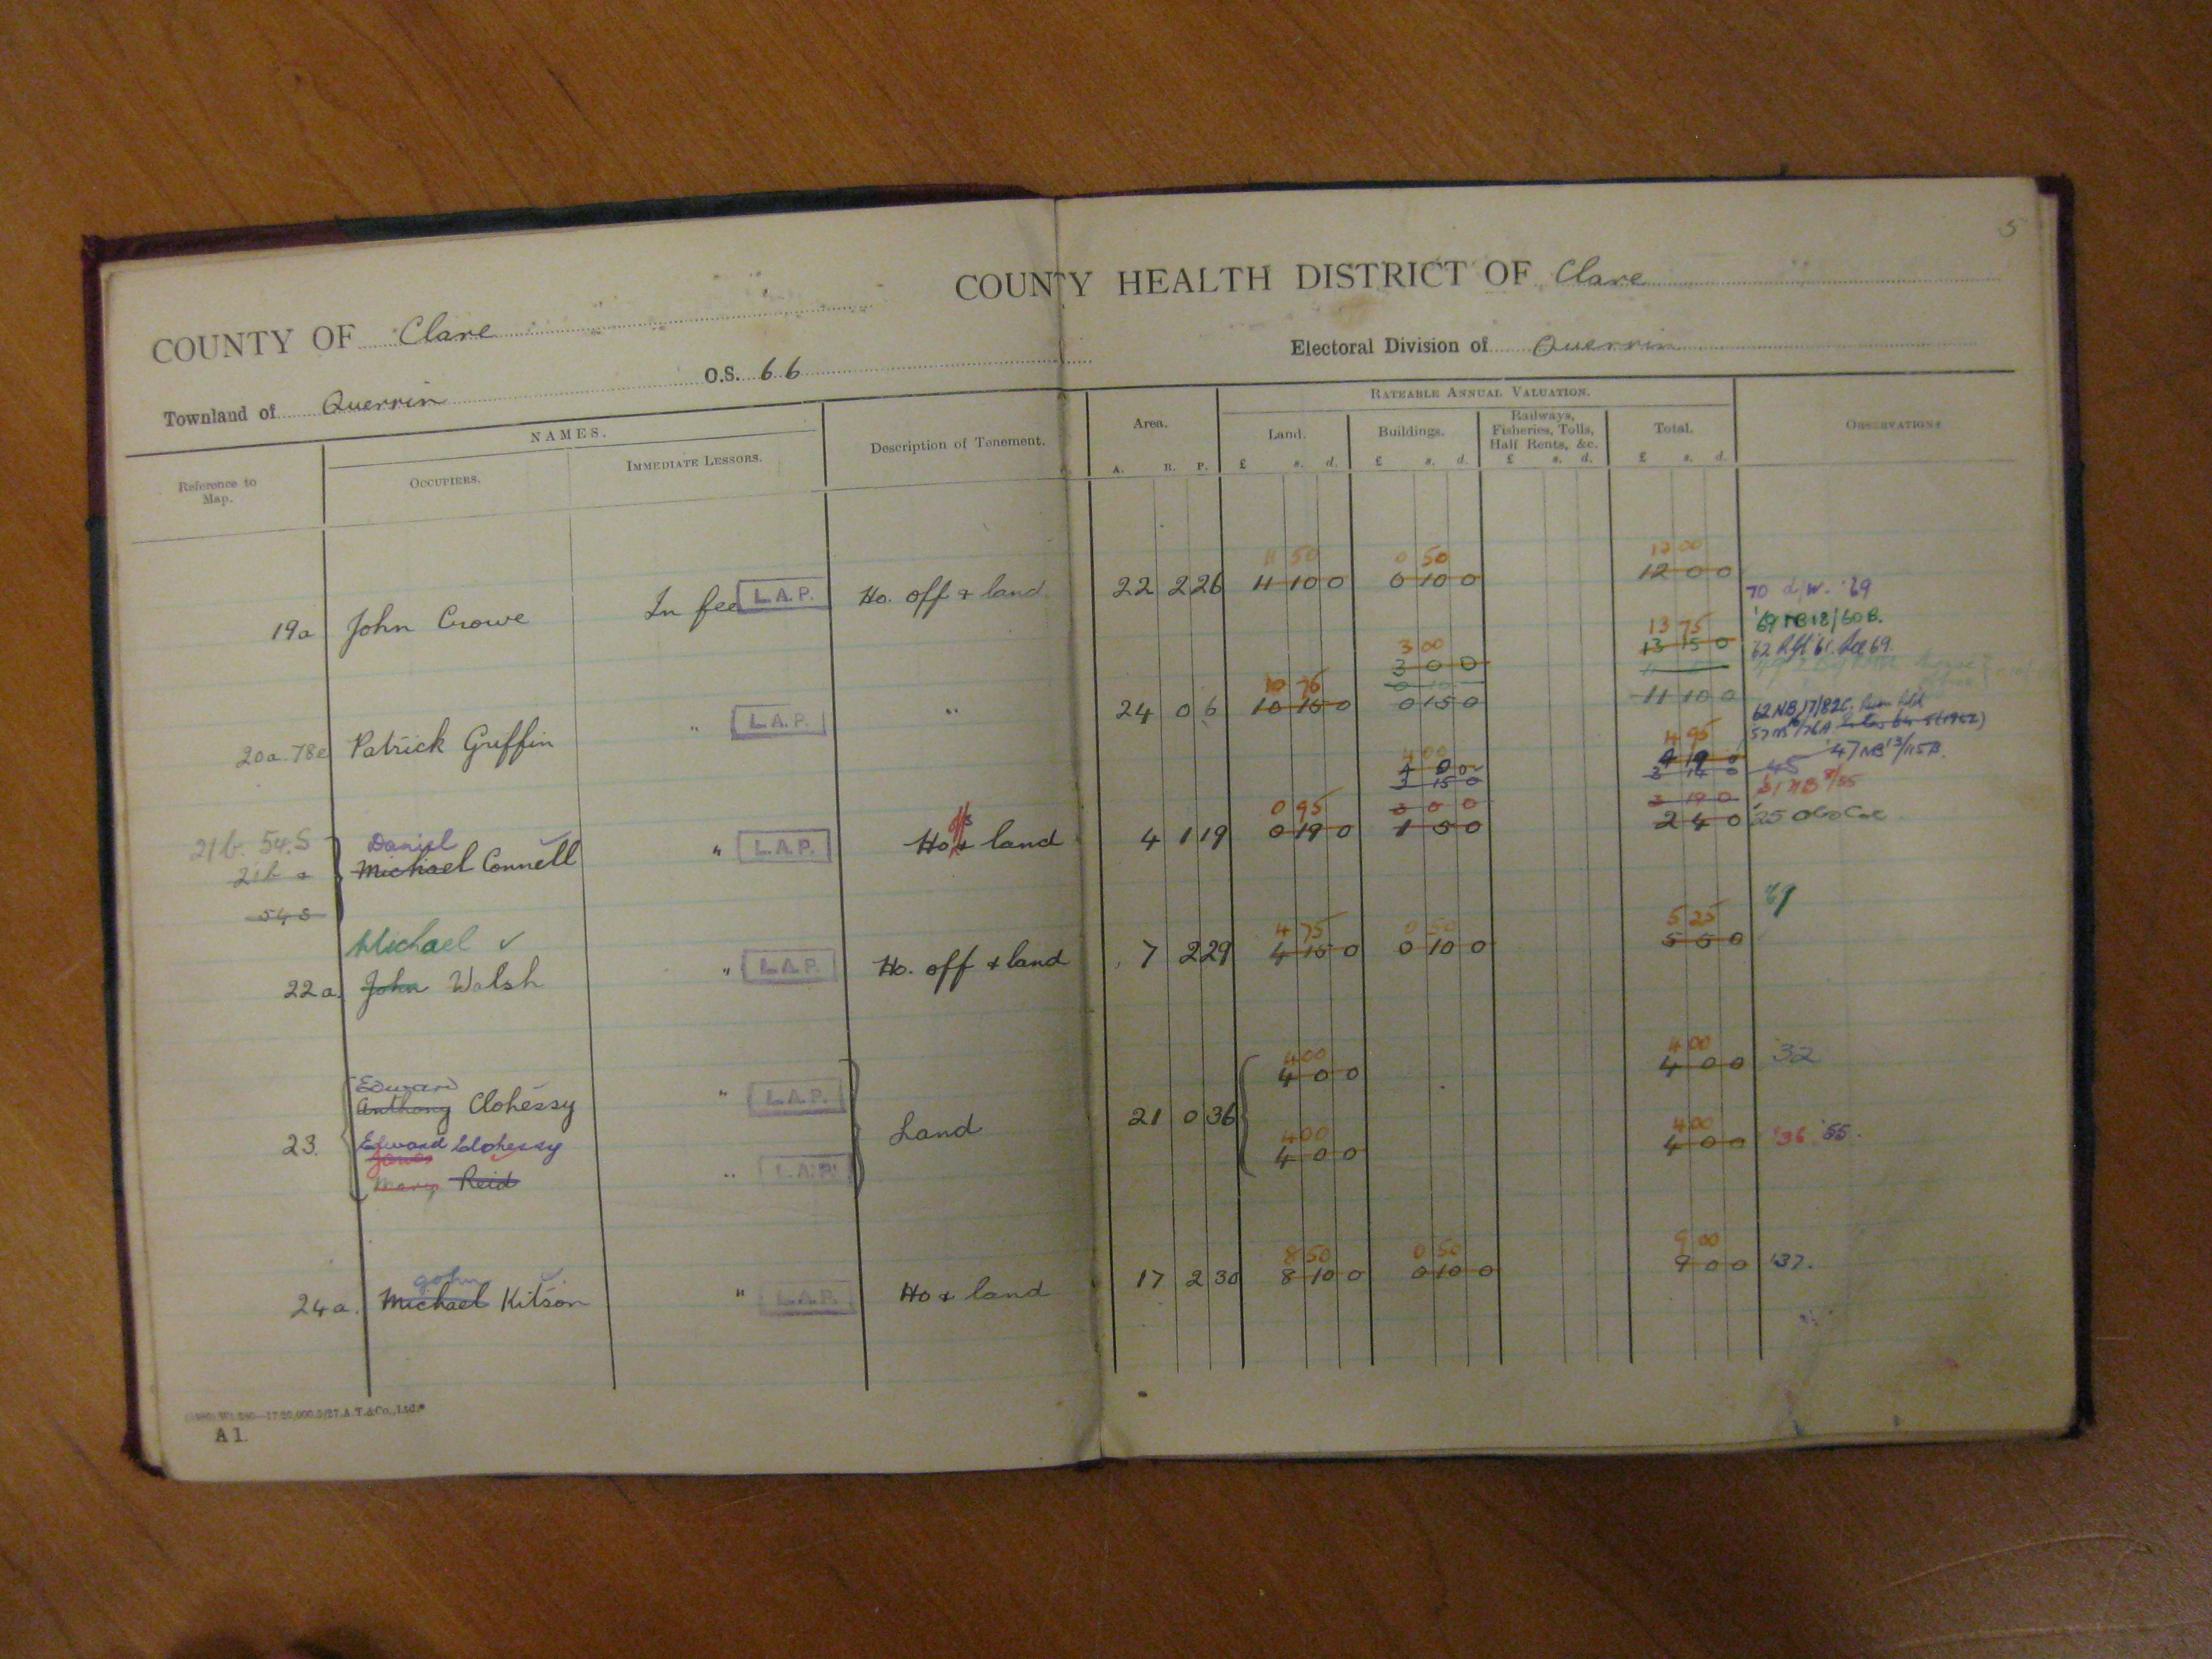 5
COUNTY OF Clare
COUNTY HEALTH DISTRICT OF Clare
Townland of Querrin O.S. 66
Electoral Division of Querrin
Reference to Map.
NAMES.
OCCUPIERS.
IMMEDIATE LESSORS.
Description of Tenement.
Area.
A. R. P.
RATEABLE ANNUAL VALUATION.
Land.
£ s. d.
Buildings.
£ s. d.
Railways, Fisheries, Tolls, Half Rents, &c.
£ s. d.
Total.
£ s. d.
OBSERVATIONS
11 50 0 50 12 00
19a John Crowe In fee L.A.P. Ho. off & land 22 2 26 11 10 0 0 10 0 12 0 0
70 d/w. '69
'69 NB 18/60 B.
13 75
3 00 13 15 0
3 0 0
10 75
20a. 78e Patrick Griffin " L.A.P. " 24 0 6 10 15 0 0 15 0 11 10 0
62 NB 17/82C.
4 95
'47 NB 13/115B.
4 00 4 19 0
4 0 0 3 14 0 45
3 15 0
'31 NB 8/55
0 95 3 0 0 3 19 0
offs
21b. 54.S Daniel
21b a Michael Connell " L.A.P. Ho & land 4 1 19 0 19 0 1 5 0 2 4 0 '25
54 S
Michael
4 75 0 50 5 25 '69
22a. John Walsh " L.A.P. Ho. off & land 7 2 29 4 15 0 0 10 0 5 5 0
Edward
4 00 4 00
Anthony Clohessy " L.A.P. 4 0 0 4 0 0 '32
23. Land 21 0 36
Edward Clohessy 4 00 4 00
James
Mary Reid " L.A.P. 4 0 0 4 0 0 '36 '55.
John
8 50 0 50 9 00
24a. Michael Kitson " L.A.P. Ho & land 17 2 30 8 10 0 0 10 0 9 0 0 '37.
A 1.